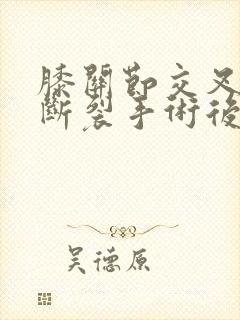 膝關節交叉
斷裂手術後
吳德原